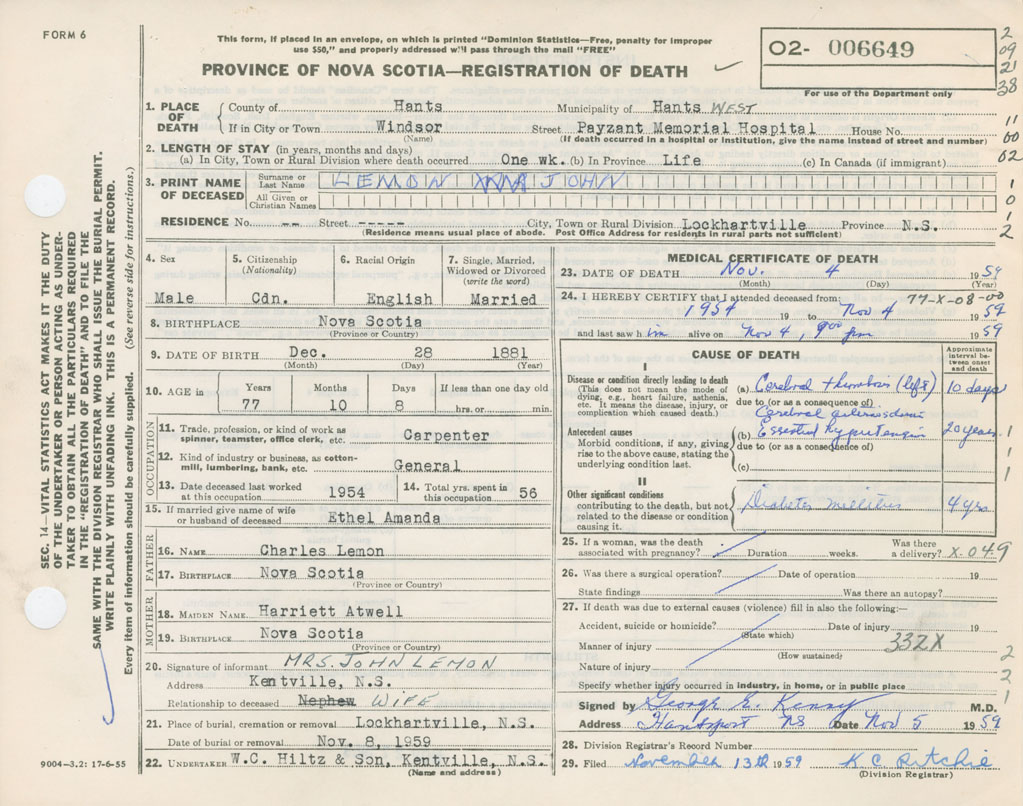 FORM 6
This form, if placed in an envelope, on which is printed "Dominion Statistics—Free, penalty for improper
use $50," and properly addressed will pass through the mail "FREE"
PROVINCE OF NOVA SCOTIA—REGISTRATION OF DEATH
02- 006649
For use of the Department only
2
09
21
38
11
00
02
1
0
1
2
1. PLACE OF DEATH
County of Hants Municipality of Hants WEST
If in City or Town Windsor Street Payzant Memorial Hospital House No.
(Name) (If death occurred in a hospital or institution, give the name instead of street and number)
2. LENGTH OF STAY (in years, months and days)
(a) In City, Town or Rural Division where death occurred One wk. (b) In Province Life (c) In Canada (if immigrant)
3. PRINT NAME OF DECEASED
Surname or Last Name LEMON JOHN
All Given or Christian Names
RESIDENCE No. -- Street ----- City, Town or Rural Division Lockhartville Province N.S.
(Residence means usual place of abode. Post Office Address for residents in rural parts not sufficient)
4. Sex
Male
5. Citizenship
(Nationality)
Cdn.
6. Racial Origin
English
7. Single, Married,
Widowed or Divorced
(write the word)
Married
8. BIRTHPLACE Nova Scotia
(Province or Country)
9. DATE OF BIRTH Dec. 28 1881
(Month) (Day) (Year)
10. AGE in Years Months Days If less than one day old
77 10 8 hrs. or min.
OCCUPATION
11. Trade, profession, or kind of work as
spinner, teamster, office clerk, etc. Carpenter
12. Kind of industry or business, as cotton-
mill, lumbering, bank, etc. General
13. Date deceased last worked
at this occupation 1954
14. Total yrs. spent in
this occupation 56
15. If married give name of wife
or husband of deceased Ethel Amanda
FATHER
16. NAME Charles Lemon
17. BIRTHPLACE Nova Scotia
(Province or Country)
MOTHER
18. MAIDEN NAME Harriett Atwell
19. BIRTHPLACE Nova Scotia
(Province or Country)
20. Signature of informant MRS. JOHN LEMON
Address Kentville, N.S.
Relationship to deceased Nephew WIFE
21. Place of burial, cremation or removal Lockhartville, N.S.
Date of burial or removal Nov. 8, 1959
22. UNDERTAKER W.C. Hiltz & Son, Kentville, N.S.
(Name and address)
9004-3.2: 17-6-55
MEDICAL CERTIFICATE OF DEATH
23. DATE OF DEATH Nov. 4 1959
(Month) (Day) (Year)
24. I HEREBY CERTIFY that I attended deceased from: 77-X-08-00
1954 19 to Nov 4 1959
and last saw him alive on Nov 4, 9:00 pm 1959
CAUSE OF DEATH
Approximate
interval be-
tween onset
and death
I
Disease or condition directly leading to death
(This does not mean the mode of
dying, e.g., heart failure, asthenia,
etc. It means the disease, injury, or
complication which caused death.)
(a) Cerebral thrombosis (left) 10 days
due to (or as a consequence of)
Cerebral
Antecedent causes
Morbid conditions, if any, giving
rise to the above cause, stating the
underlying condition last.
(b) Essential hypertension 20 years
due to (or as a consequence of)
(c)
1
1
1
II
Other significant conditions
contributing to the death, but not
related to the disease or condition
causing it.
Diabetes mellitus 4 yrs
25. If a woman, was the death
associated with pregnancy? Duration weeks. Was there
a delivery? X.04.9
26. Was there a surgical operation? Date of operation 19
State findings Was there an autopsy?
27. If death was due to external causes (violence) fill in also the following:—
Accident, suicide or homicide? Date of injury 19
(State which)
Manner of injury 332X
(How sustained)
Nature of injury
2
2
1
Specify whether injury occurred in industry, in home, or in public place
Signed by George E. Kenny M.D.
Address Hantsport NS Date Nov 5 1959
28. Division Registrar's Record Number
29. Filed November 13th 1959 K C Ritchie
(Division Registrar)
SEC. 14—VITAL STATISTICS ACT MAKES IT THE DUTY
OF THE UNDERTAKER OR PERSON ACTING AS UNDER-
TAKER TO OBTAIN ALL THE PARTICULARS REQUIRED
IN THE "REGISTRATION OF DEATH" AND TO FILE THE
SAME WITH THE DIVISION REGISTRAR WHO SHALL ISSUE THE BURIAL PERMIT.
WRITE PLAINLY WITH UNFADING INK. THIS IS A PERMANENT RECORD.
Every item of information should be carefully supplied. (See reverse side for instructions.)